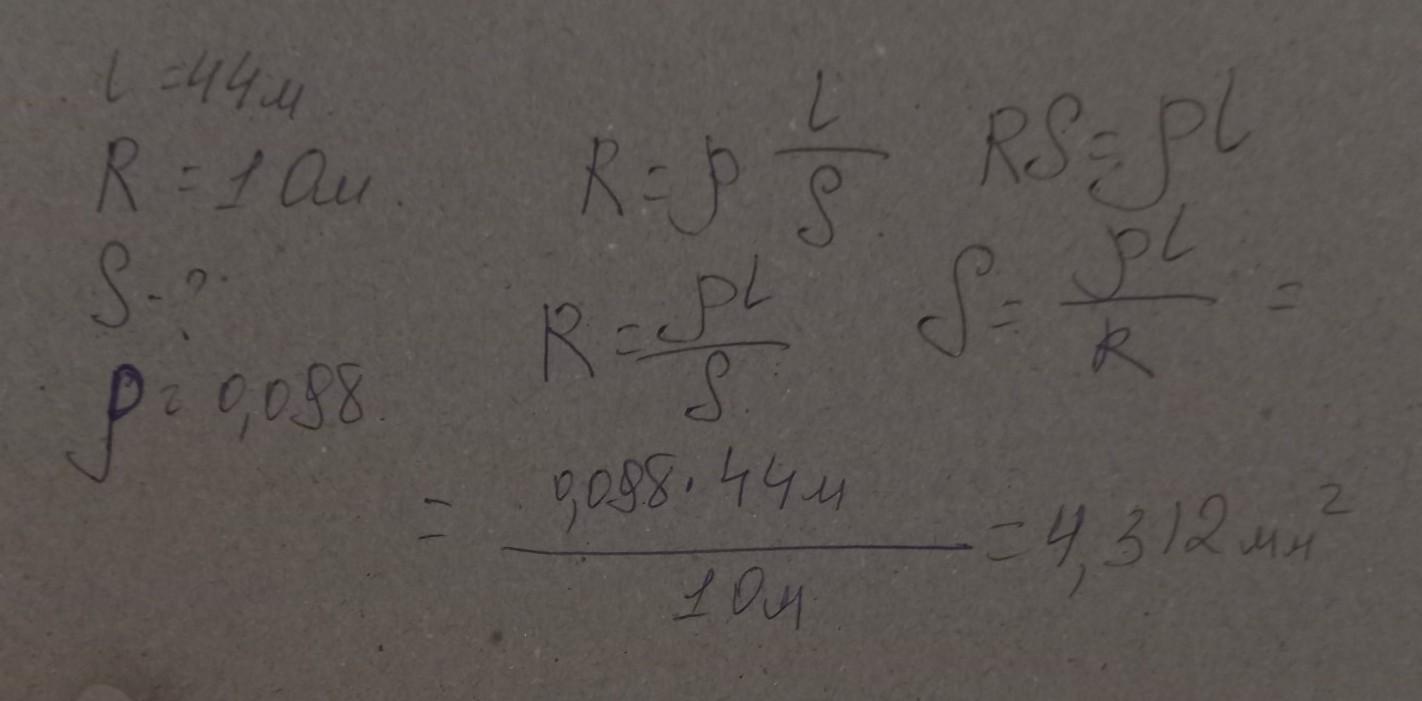 l = 44м
R = 1 Ом.
S - ?
ρ = 0,098.
R = ρ l/S
RS = ρl
R = ρl/S
S = ρl/R =
= 0,098 · 44м / 1 Ом = 4,312 мм²